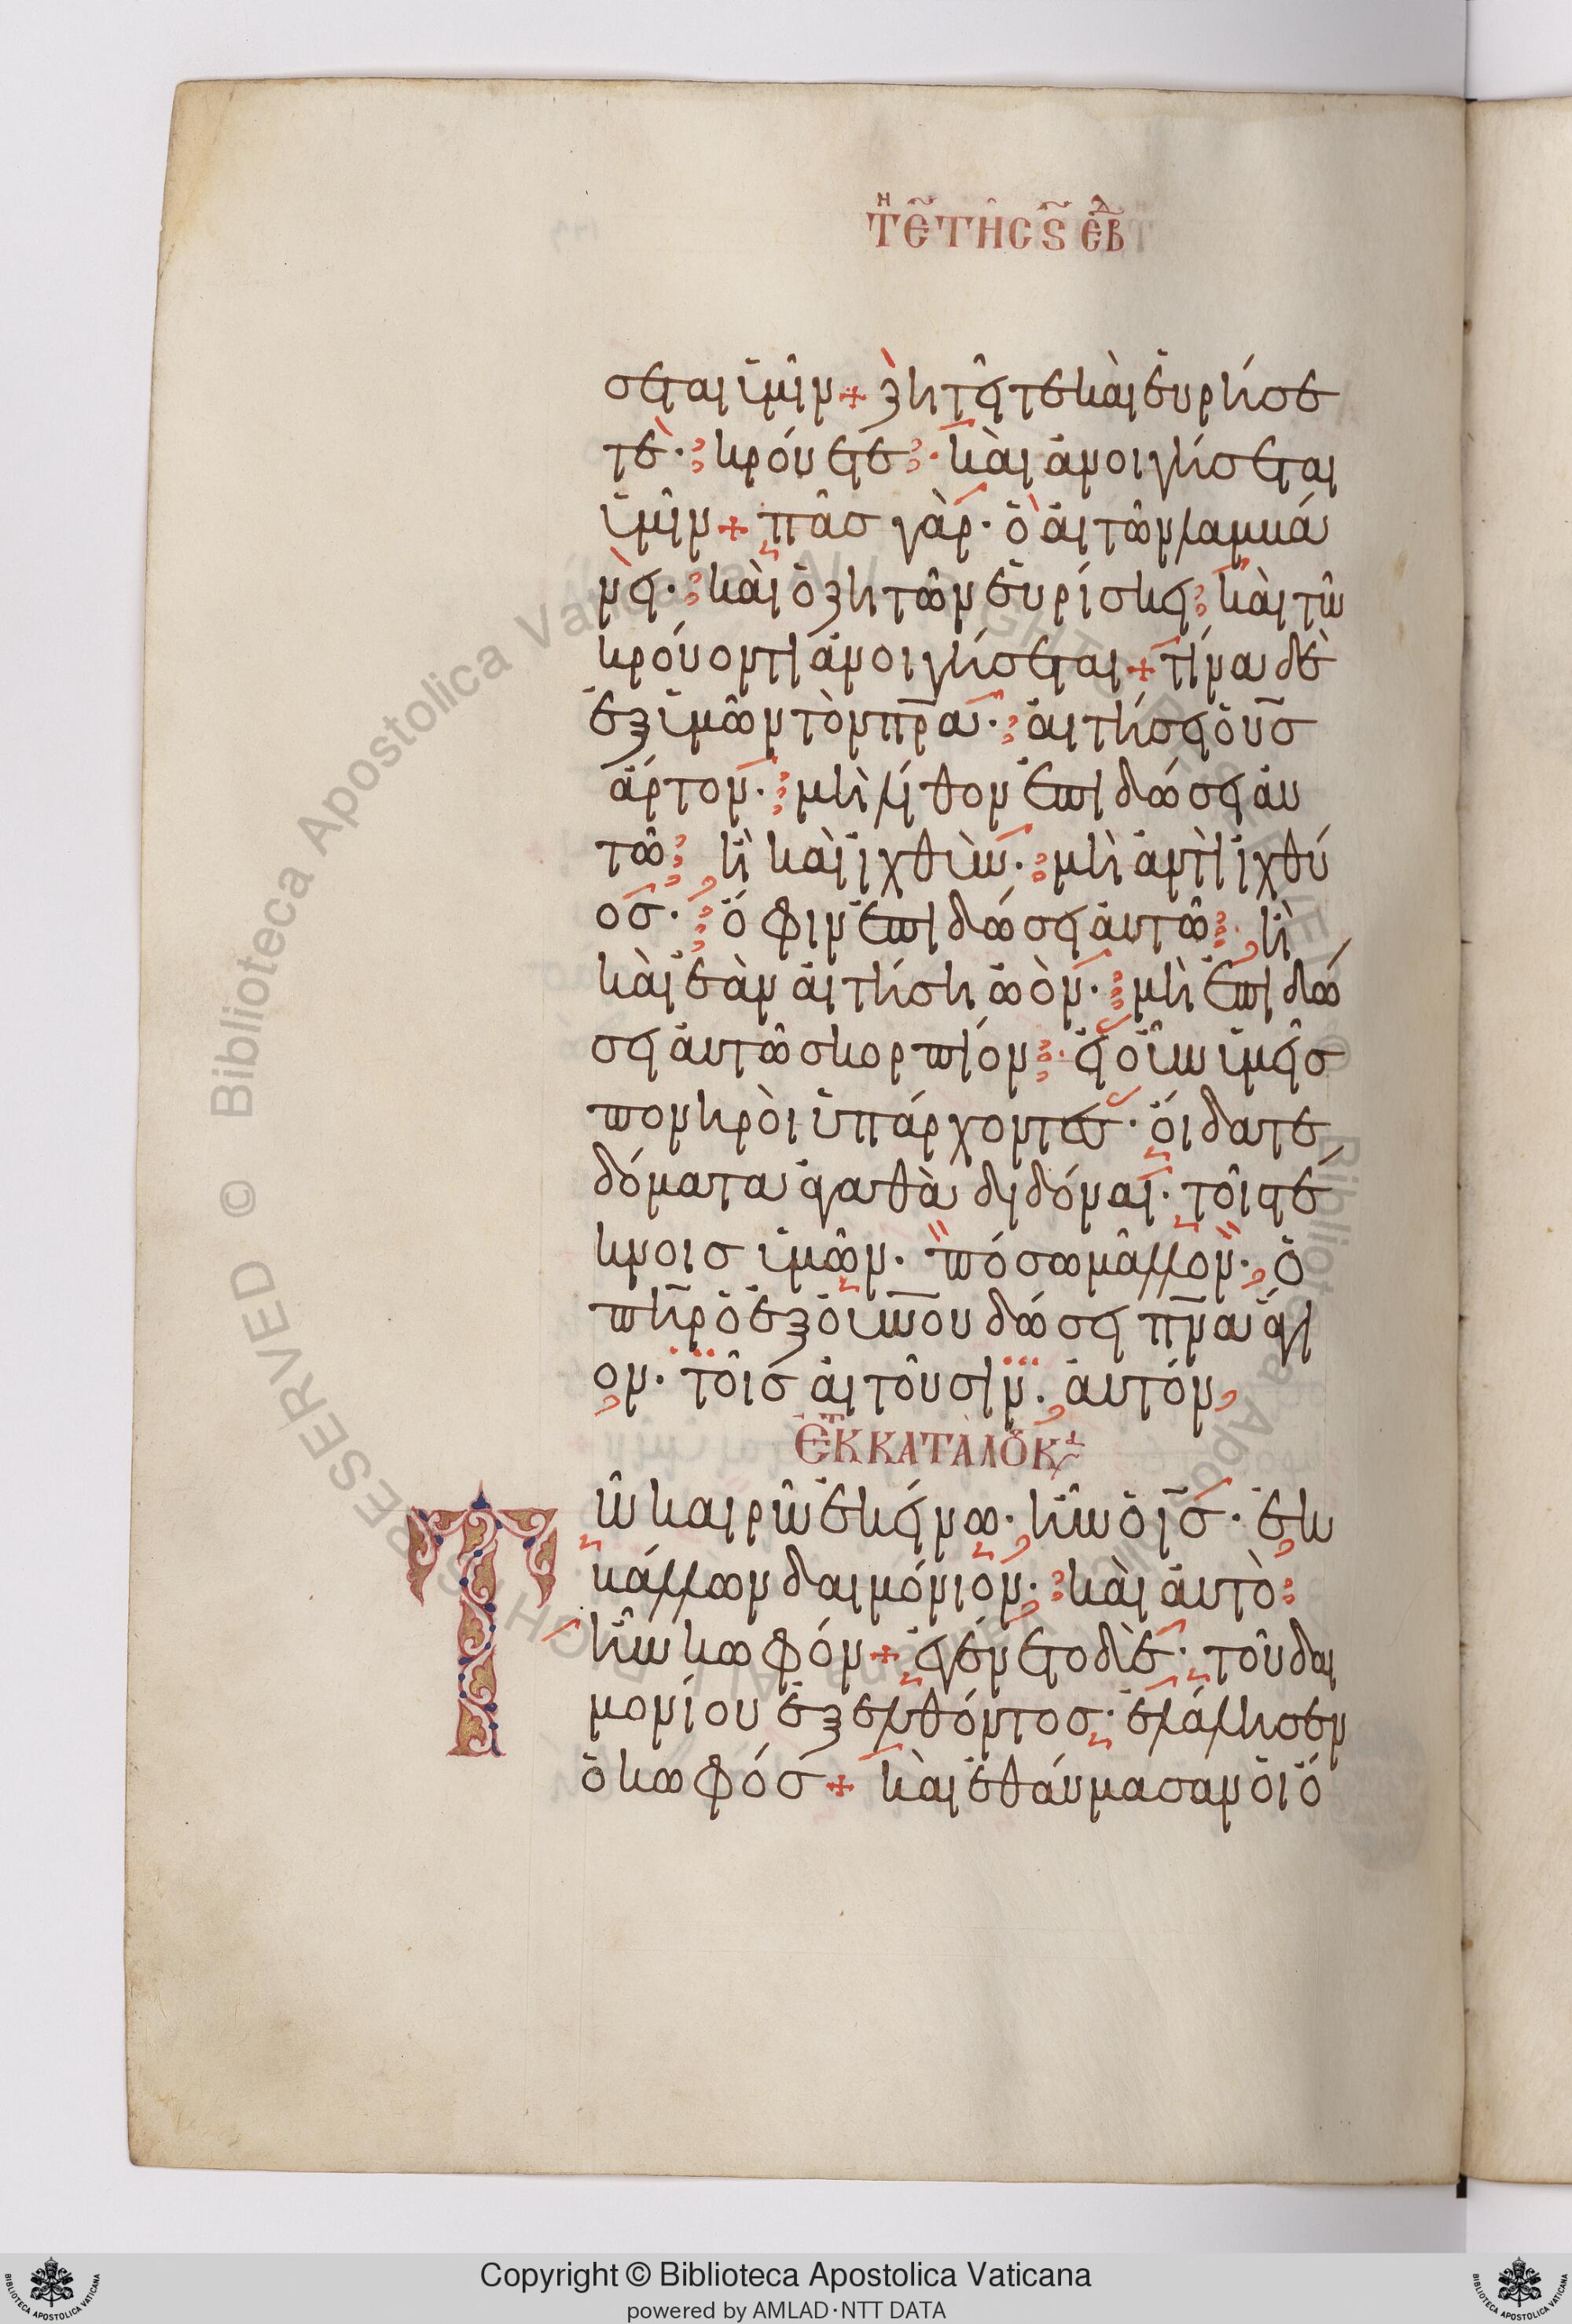 Τῌ Ε̃ ΤΗ̂Ϲ Ϛ̄ ἙΒΔ
σεται ὑμῖν + ζητεῖτε καὶ εὑρήσε
τε· κρούετε· καὶ ἀνοιγήσεται
ὑμῖν + πᾶσ γὰρ· ὁ αἰτῶν λαμβά
νει· καὶ ὁ ζητῶν εὑρίσκει· καὶ τῶ
κρούοντι ἀνοιγήσεται + τίνα δὲ
ἐξ ὑμῶν τὸν π̅ρ̅α· αἰτήσει ὁ υ̅σ̅
ἄρτον· μὴ λίθον ἐπιδώσει αὐ
τῶ· ἢ καὶ ἰχθὺν· μὴ ἀντὶ ἰχθύ
οσ· ὄφιν ἐπιδώσει αὐτῶ· ἢ
καὶ ἐὰν αἰτήση ὠὸν· μὴ ἐπιδώ
σει αὐτῶ σκορπίον· εἰ οὖν ὑμεῖσ
πονηροὶ ὑπάρχοντεσ· οἴδατε
δόματα ἀγαθὰ διδόναι· τοῖσ τέ
κνοισ ὑμῶν· πόσω μᾶλλον· ὁ
π̅η̅ρ̅ ὁ ἐξ ο̅υ̅ν̅ο̅υ̅ δώσει π̅ν̅α̅ ἅγι
ον· τοῖσ αἰτοῦσιν· αὐτόν
ἘΚ Τ ΚΑΤΑ ΛΟΥΚ
Τῶ καιρῶ ἐκείνω· ἦν ὁ ι̅σ̅· ἐκ
βάλλων δαιμόνιον· καὶ αὐτὸ
ἦν κωφόν + ἐγένετο δὲ· τοῦ δαι
μονίου ἐξελθόντοσ· ἐλάλησεν
ὁ κωφόσ + καὶ ἐθαύμασαν οἱ ὄ
Copyright © Biblioteca Apostolica Vaticana
powered by AMLAD·NTT DATA